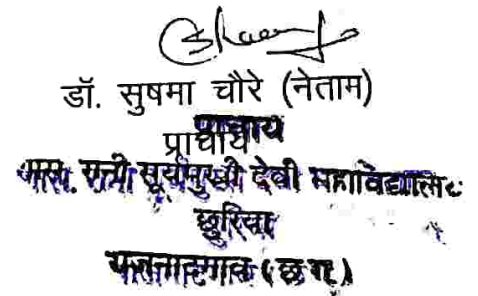 डॉ. सुषमा चौरे (नेताम)
प्राचार्य
प्राचार्य
शास. रानी सूर्यमुखी देवी महाविद्यालय
छुरिया
राजनांदगांव (छ.ग.)